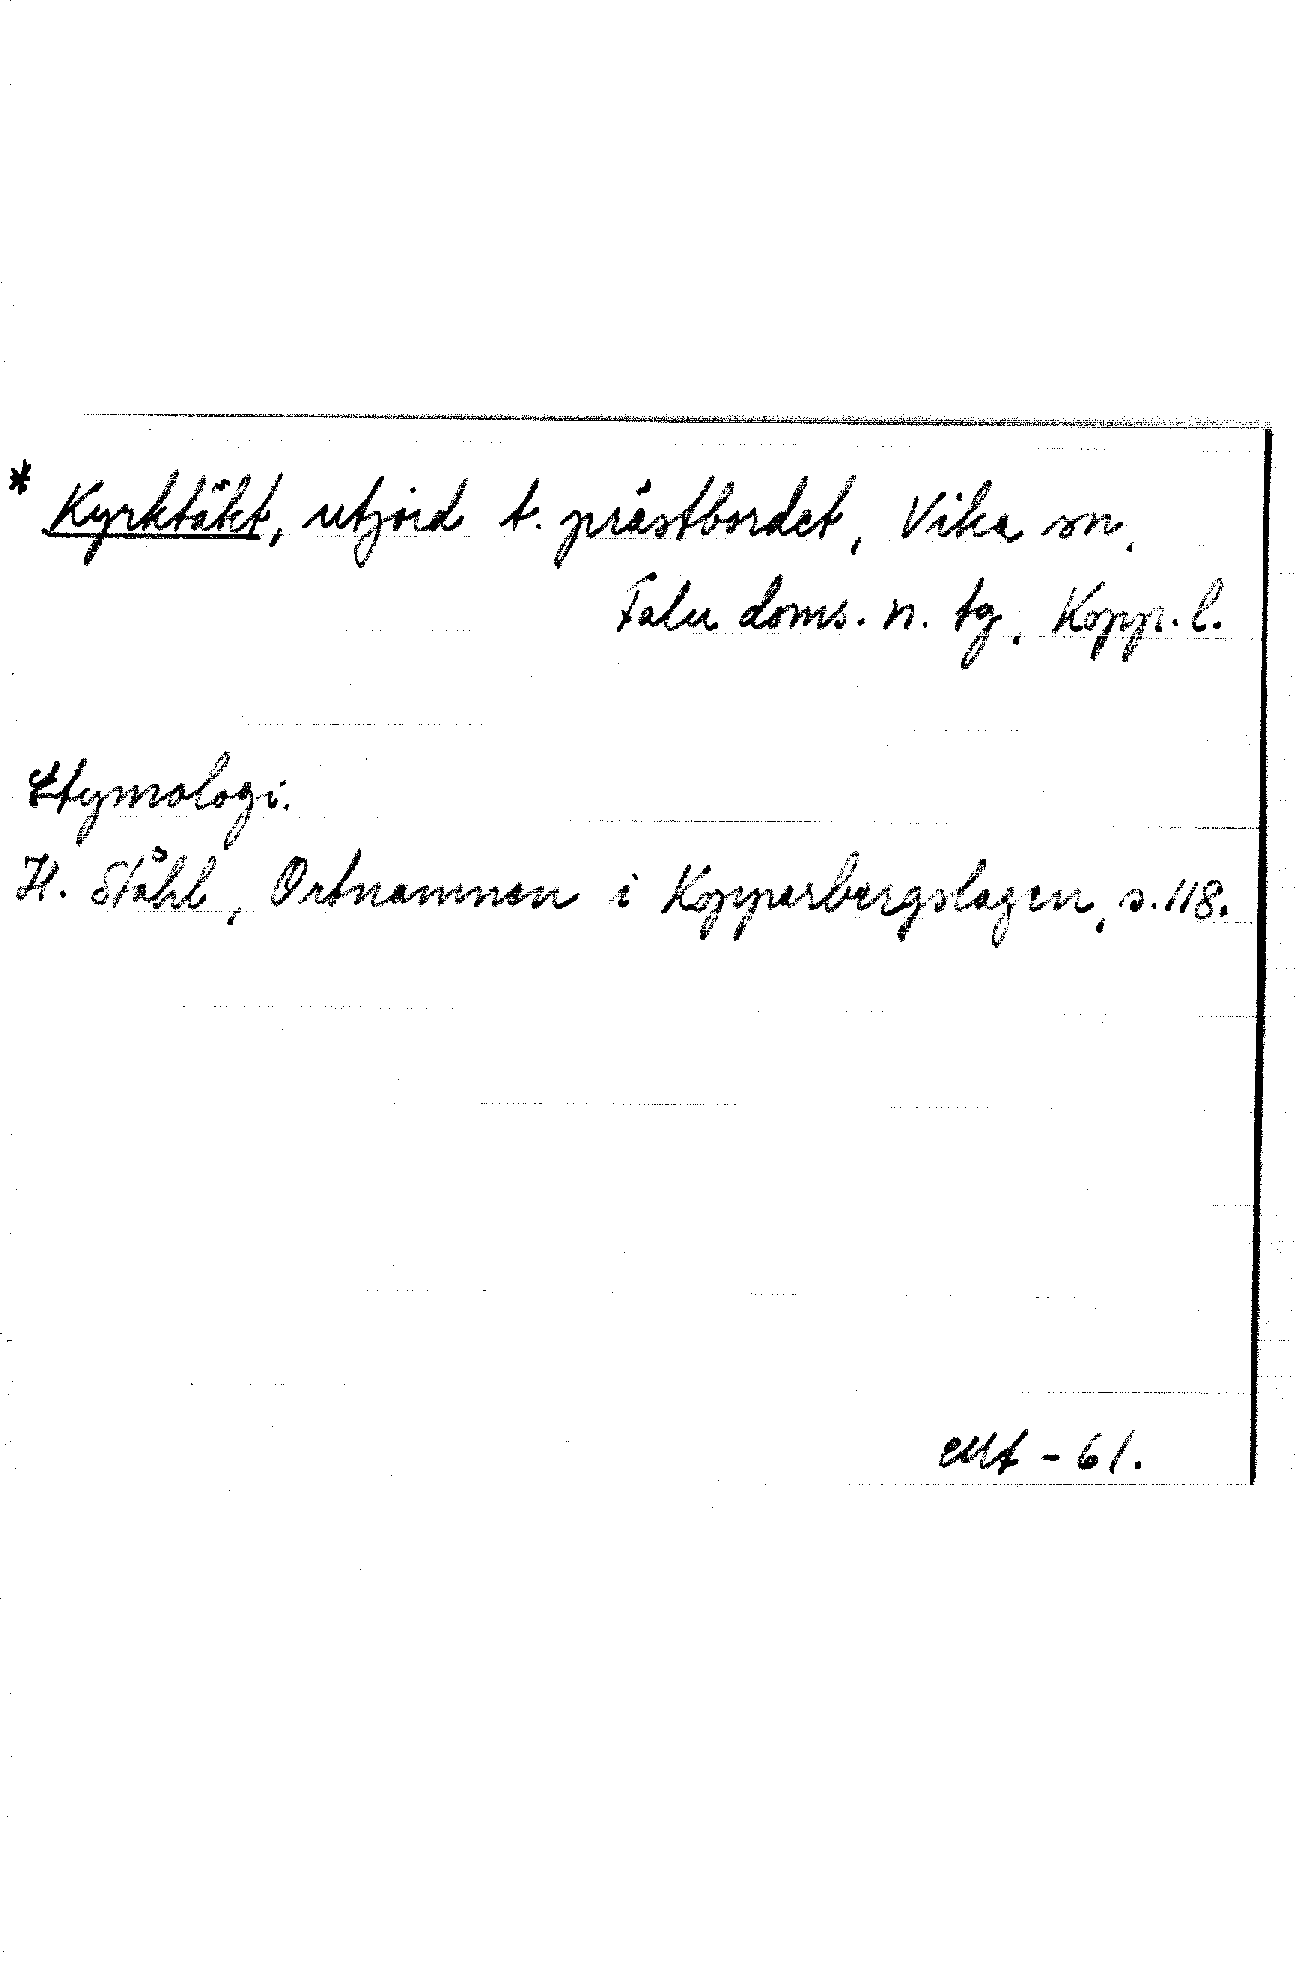 * Kyrktäkt, utjord t. prästbordet, Vika sn,
Falu doms. n. tg, Kopp. l.
Etymologi.
H. Ståhl, Ortnamnen i Kopparbergslagen, s. 118.
- 61.